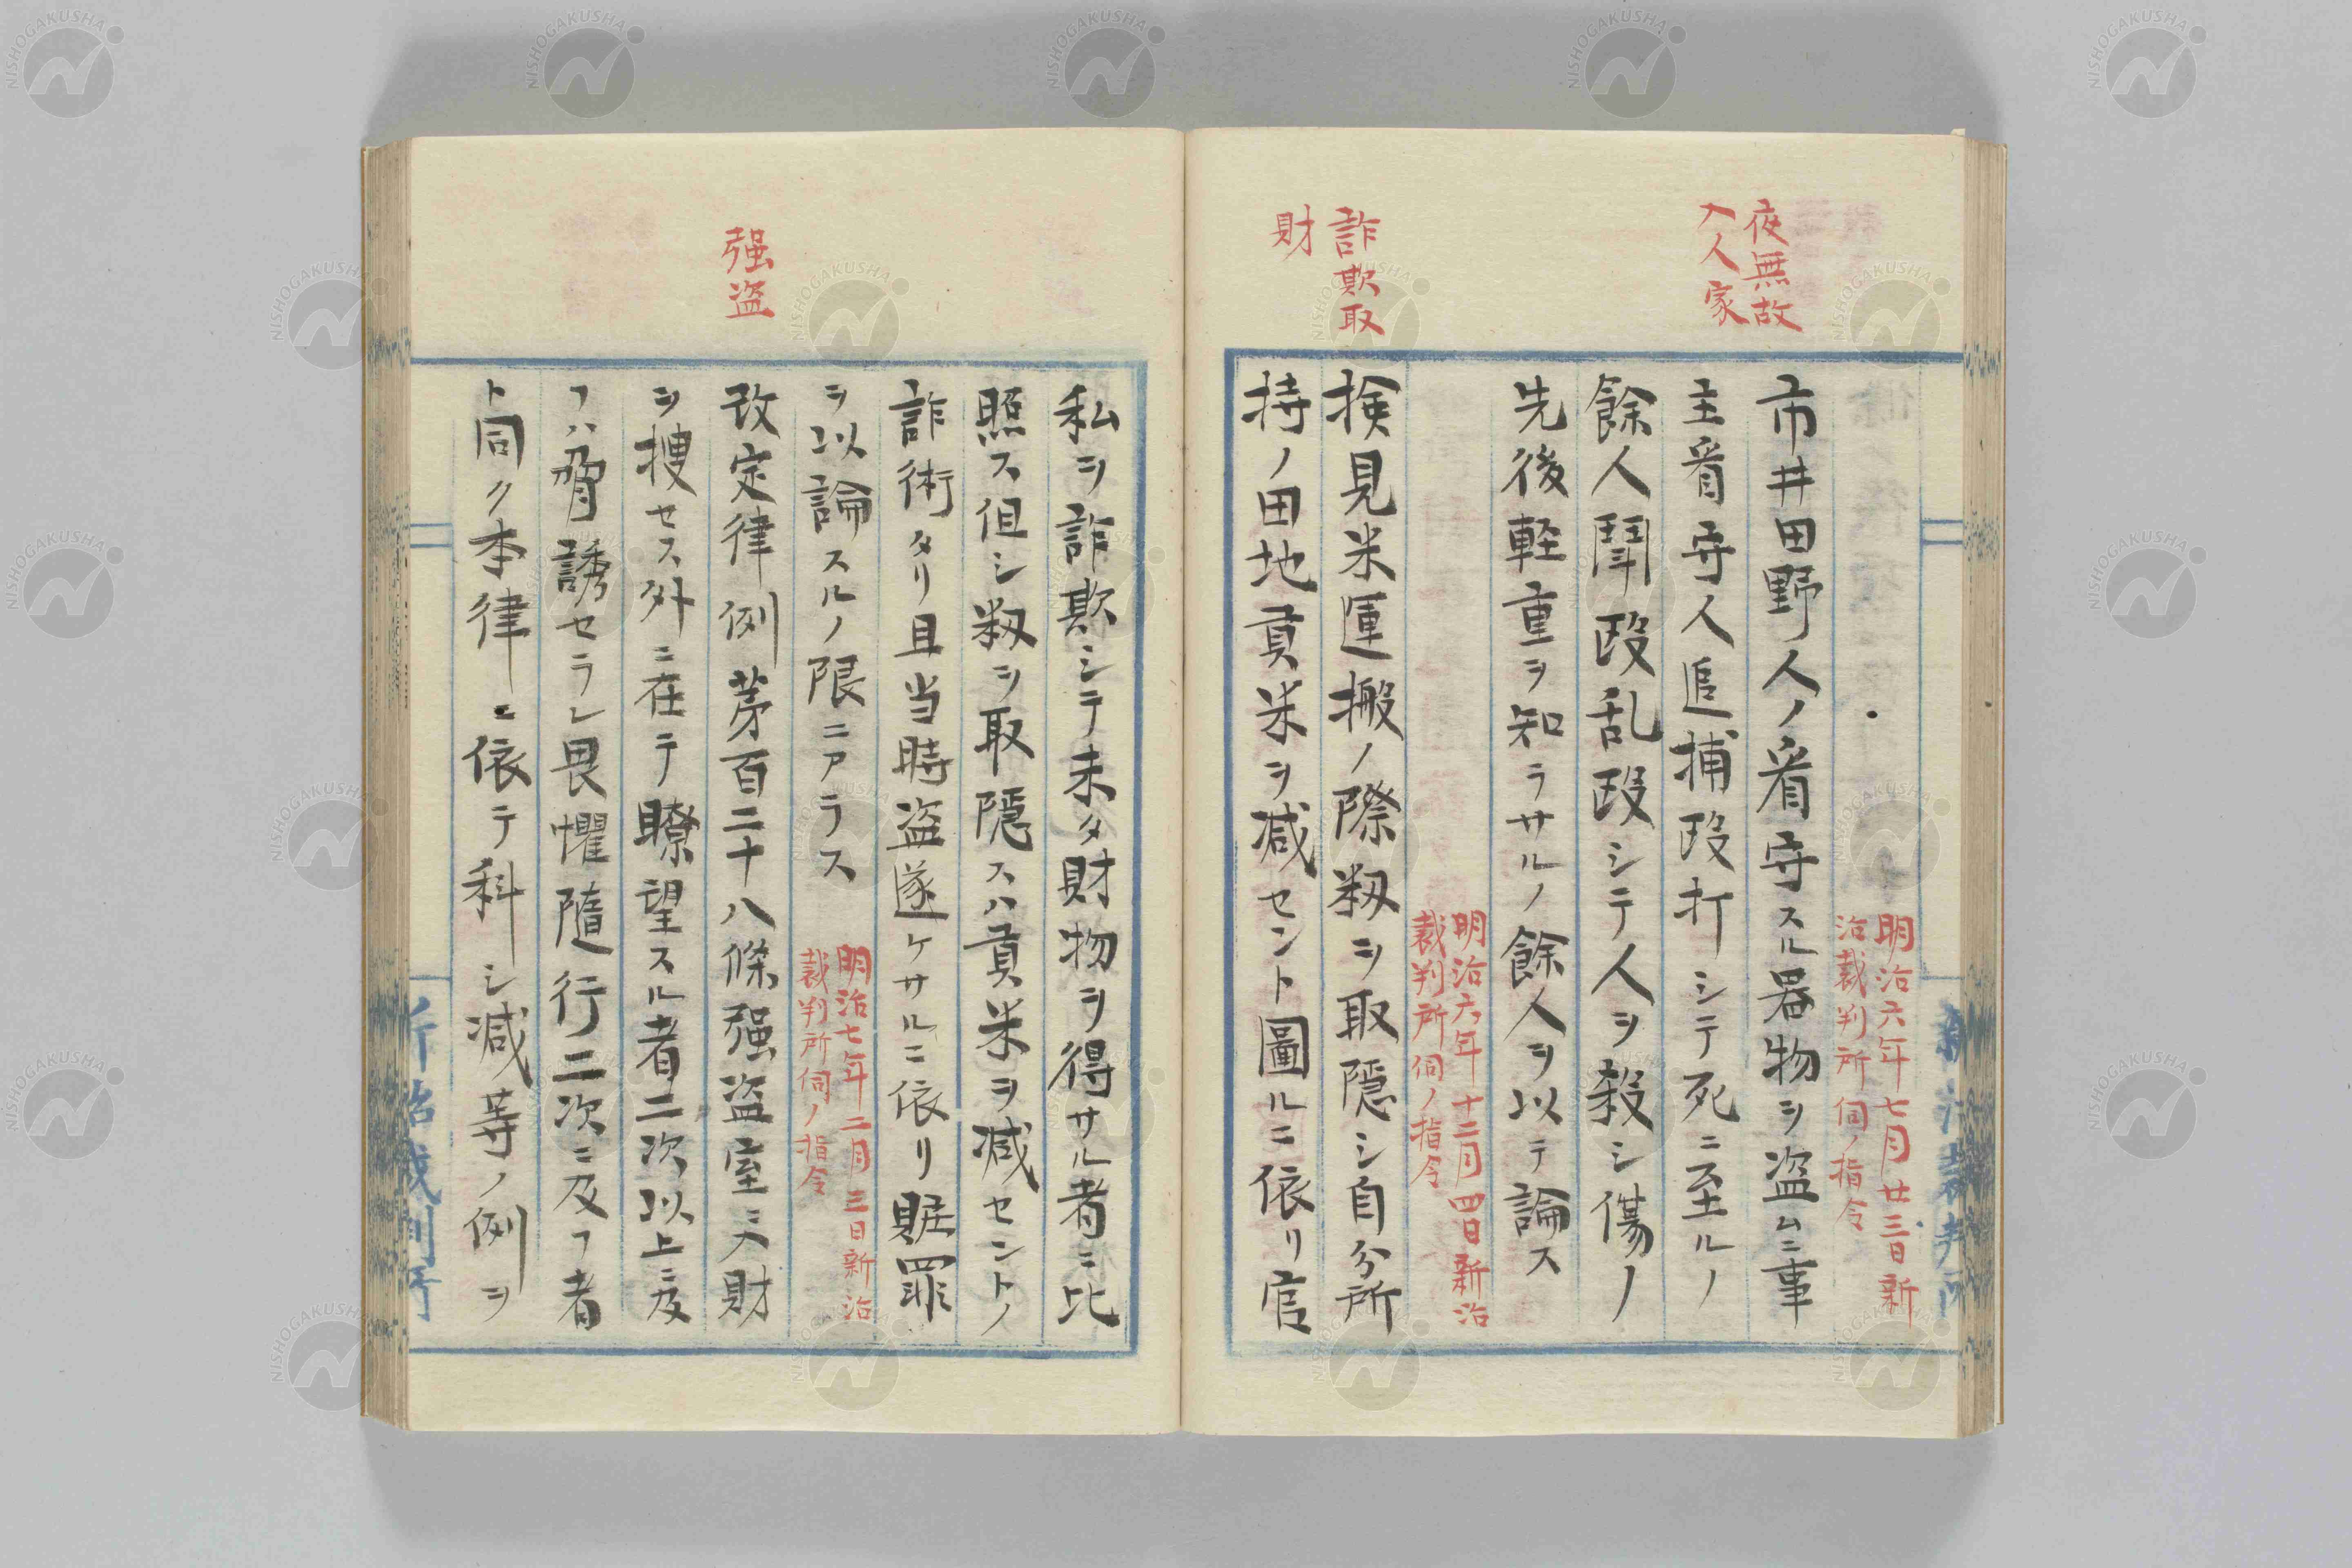 夜無故
入人家
明治六年七月廿三日新
治裁判所伺ノ指令
市井田野人ノ看守スル器物ヲ盗ムニ事
主看守人追捕殴打シテ死ニ至ルノ
餘人鬪殴乱殴シテ人ヲ殺シ傷ノ
先後軽重ヲ知ラサルノ餘人ヲ以テ論ス
明治六年十二月四日新治
裁判所伺ノ指令
詐欺取
財
検見米運搬ノ際籾ヲ取隠シ自分所
持ノ田地貢米ヲ減セント圖ルニ依リ官
私ヲ詐欺シテ未タ財物ヲ得サル者ニ比
照ス但シ籾ヲ取隠スハ貢米ヲ減セントノ
詐術タリ且当時盗遂ケサルニ依リ賍罪
ヲ以論スルノ限ニアラス
明治七年二月三日新治
裁判所伺ノ指令
强盗
改定律例苐百二十八條强盗室ニ入財
ヲ捜セス外ニ在テ瞭望スル者二次以上ニ及
フハ脅誘セラレ畏懼隨行二次ニ及フ者
ト同ク本律ニ依テ科シ減等ノ例ヲ
新治裁判所
NISHOGAKUSHA